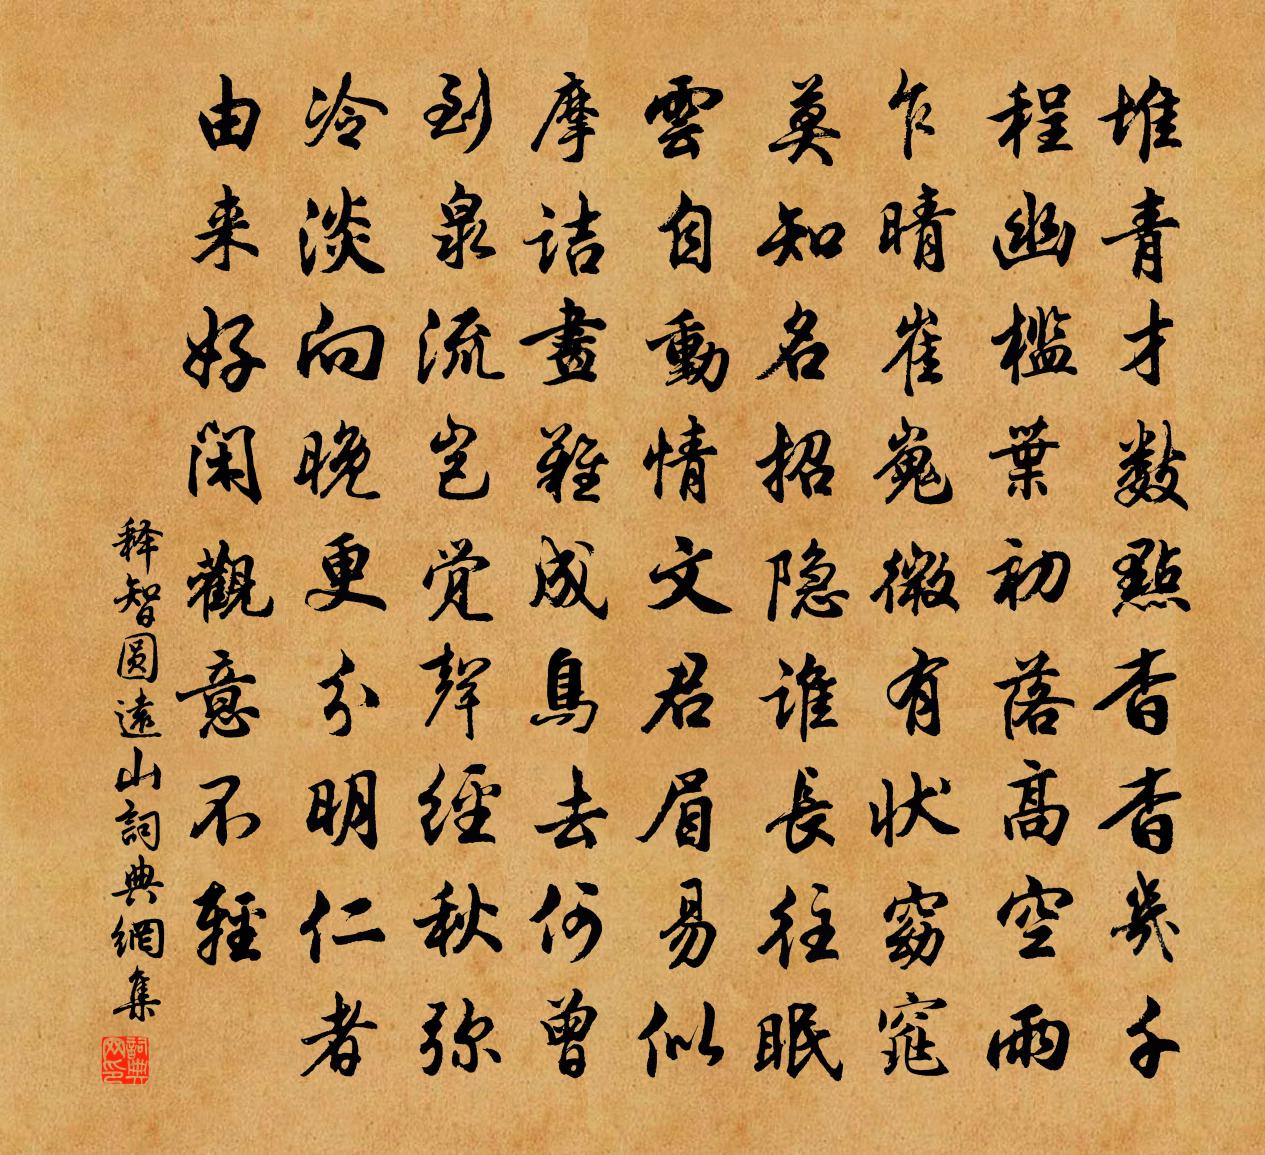 堆青才數點杳杳幾千
程幽檻葉初落高空雨
乍晴崔嵬微有狀窈窕
莫知名招隐誰長往眠
雲自動情文君眉易似
摩詰畫難成鳥去何曾
到泉流岂觉聲經秋弥
冷淡向晚更分明仁者
由来好閑觀意不輕
释智圆遠山詞典網集
詞典网印